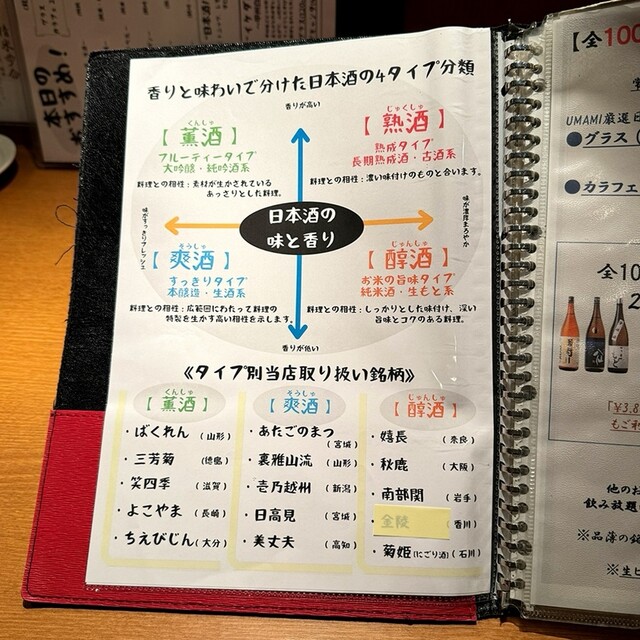 本日の
おすすめ!
香りと味わいで分けた日本酒の4タイプ分類
香りが高い
くんしゅ
【薫酒】
フルーティータイプ
大吟醸・純吟酒系
料理との相性:素材が生かされている
あっさりとした料理。
じゅくしゅ
【熟酒】
熟成タイプ
長期熟成酒・古酒系
料理との相性:濃い味付けのものと合います。
味がすっきりフレッシュ
日本酒の
味と香り
味が濃厚まろやか
そうしゅ
【爽酒】
すっきりタイプ
本醸造・生酒系
料理との相性:広範囲にわたって料理の
特製を生かす高い相性を示します。
じゅんしゅ
【醇酒】
お米の旨味タイプ
純米酒・生もと系
料理との相性:しっかりとした味付け、深い
旨味とコクのある料理。
香りが低い
《タイプ別当店取り扱い銘柄》
くんしゅ
【薫酒】
・ばくれん(山形)
・三芳菊(徳島)
・笑四季(滋賀)
・よこやま(長崎)
・ちえびじん(大分)
そうしゅ
【爽酒】
・あたごのまつ(宮城)
・裏雅山流(山形)
・壱乃越州(新潟)
・日高見(宮城)
・美丈夫(高知)
じゅんしゅ
【醇酒】
・嬉長(奈良)
・秋鹿(大阪)
・南部関(岩手)
金陵(香川)
・菊姫(にごり酒)(石川)
【全100
UMAMI厳選日
●グラス(
●カラフェ
全10
2
「¥3,8
もご
他のお
飲み放題
※品薄の銘
※生ビ